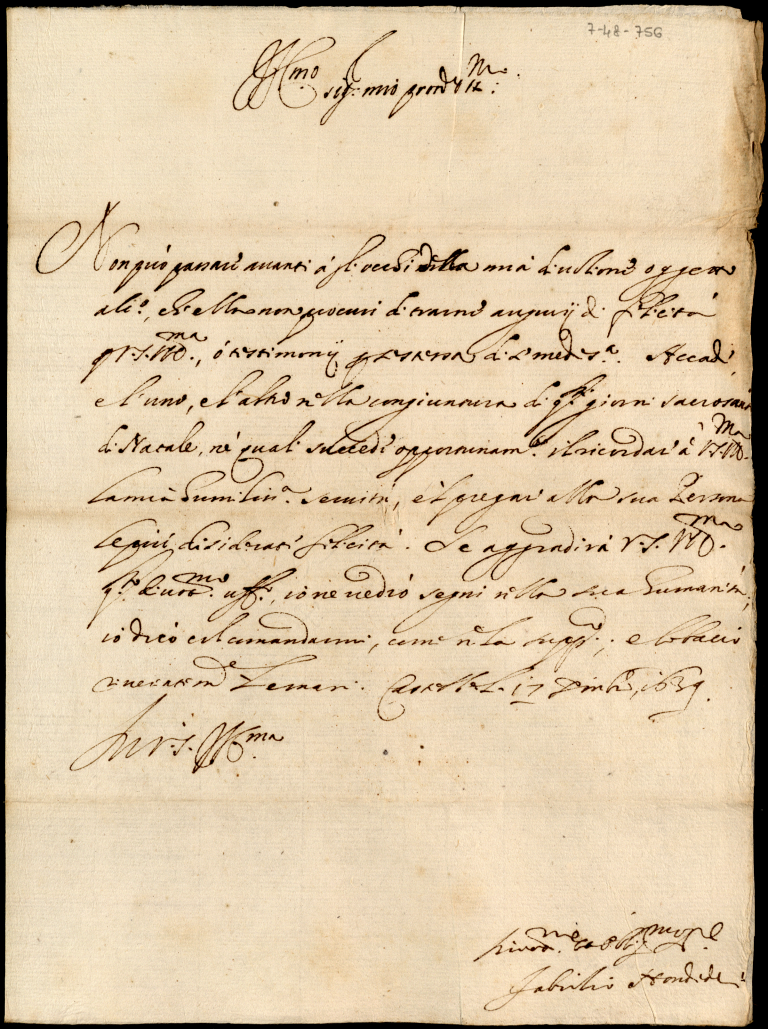 7-48-756
Ill.mo sig.r mio
Non può passare avanti à gli occhi della mia divotione oggetto
alc.o, ch'ella non procuri di trarne augurij di felicità
à V.S. Ill.ma, ò testimonij di me medes.o. Accade
e l'uno, e l'altro nella congiuntura di q.sti giorni sacrosanti
di Natale, ne' quali succede opportunam.te il ricordare à V.S. Ill.ma
la mia humiliss.a servitù, e'l pregar alla sua Persona
le più desiderate felicità. Se aggradirà V.S. Ill.ma
q.sto uff.o, io ne vedrò segni nella sua humanità,
io dico col comandarmi, come ne la supp.co; e le bacio
le mani. Castel 17 Dimb.e, 1639
Di V.S. Ill.ma
Fabritio